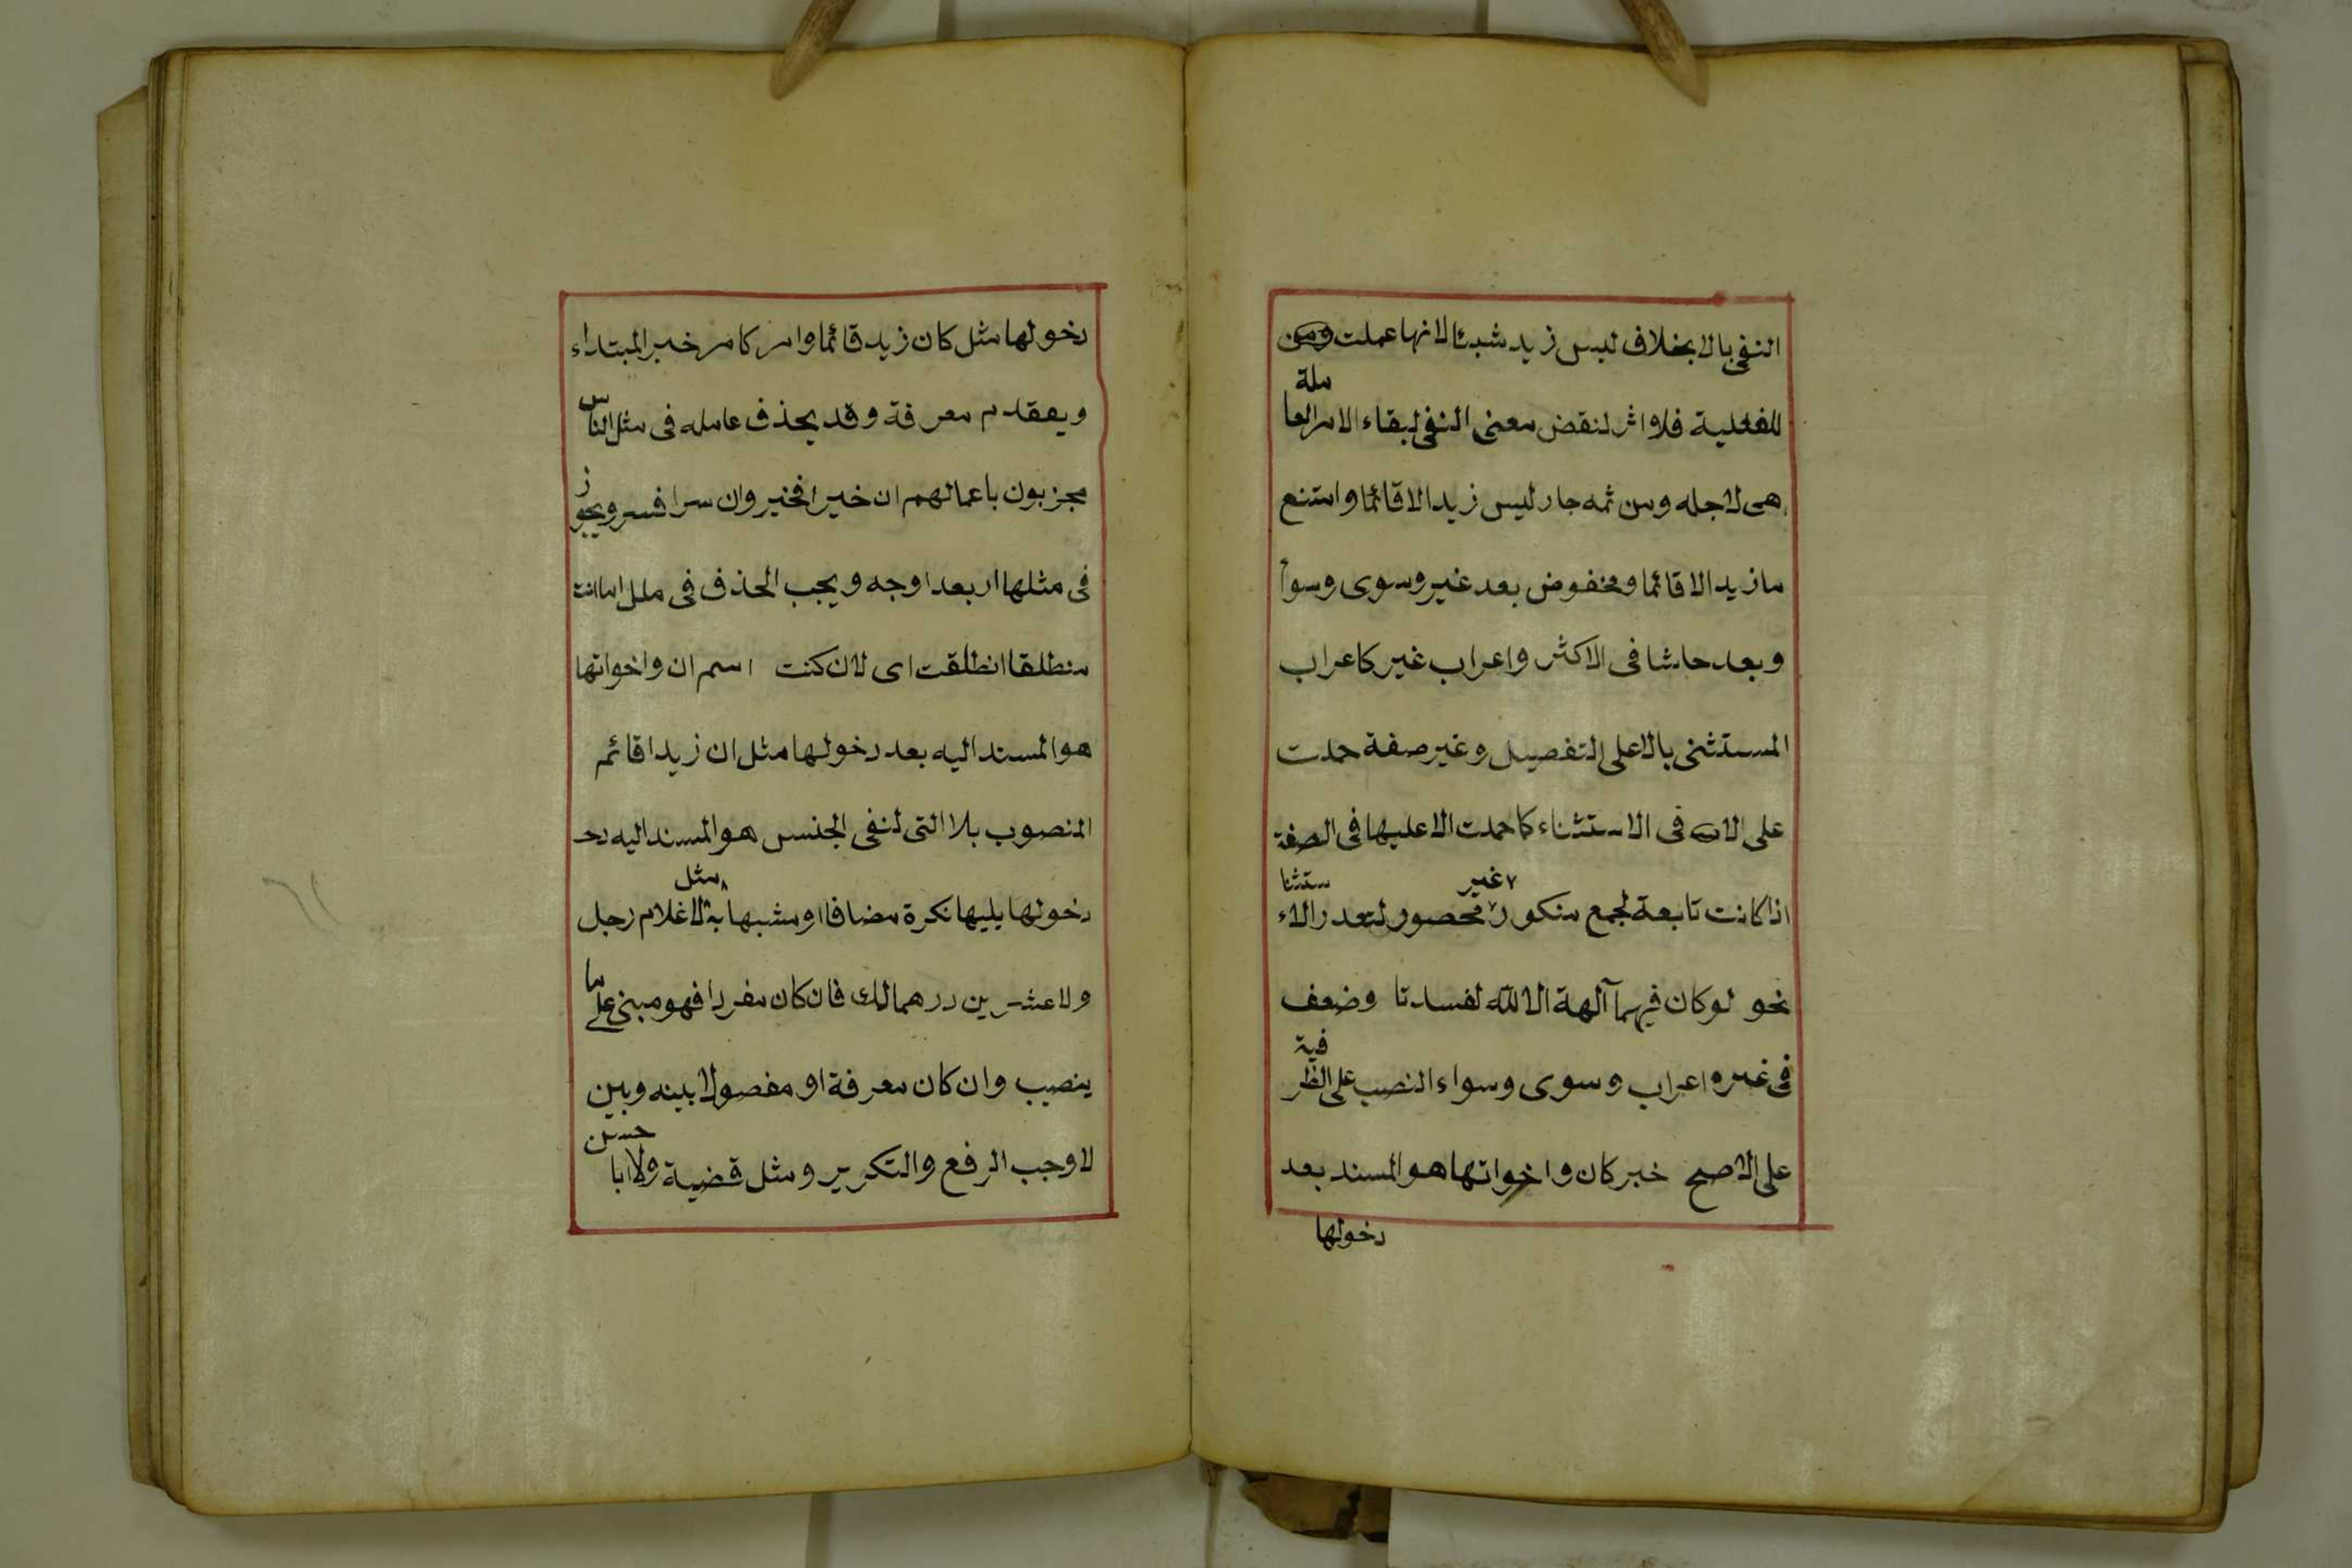 النفى بالا بخلاف ليس زيد شيئا لانها عملت
للفعلية فلا اثر لنقض معنى النفى لبقاء الامر العاملة
هى لاجله ومن ثمه جار ليس زيد الا قائما وامتنع
ما زيد الا قائما ومخفوض بعد غير وسوى وسوأ
وبعد حاشا فى الاكثر واعراب غير كاعراب
المستثنى بالا على التفصيل وغير صفة حملت
على الا فى الاستثناء كما حملت الا عليها فى الصفة
اذا كانت تابعة لجمع منكور غير محصور لتعدر الاستثنا
نحو لو كان فيهما آلهة الا الله لفسدتا وضعف
فى غيره اعراب وسوى وسواء النصب على الظرفية
على الاصح خبر كان واخواتها هو المسند بعد
دخولها
دخولها مثل كان زيد قائما وامر كامر خبر المبتداء
ويعقدم معرفة وقد يحذف عامله فى مثل الناس
مجزبون باعمالهم ان خيرا فخير وان سرا فسر ويجوز
فى مثلها اربعد اوجه ويجب الحذف فى ملل اما انت
منطلقا انطلقت اى لان كنت اسم ان واخواتها
هو المسند اليه بعد دخولها مثل ان زيدا قائم
المنصوب بلا التى لنفى الجنس هو المسند اليه
دخولها يليها نكرة مضافا او مشبها به مثل لا غلام رجل
ولا عشرين درهما لك فان كان مفردا فهو مبنى على ما
ينصب وان كان معرفة او مفصولا بينه وبين
لا وجب الرفع والتكرير ومثل قضية ولا ابا حسن